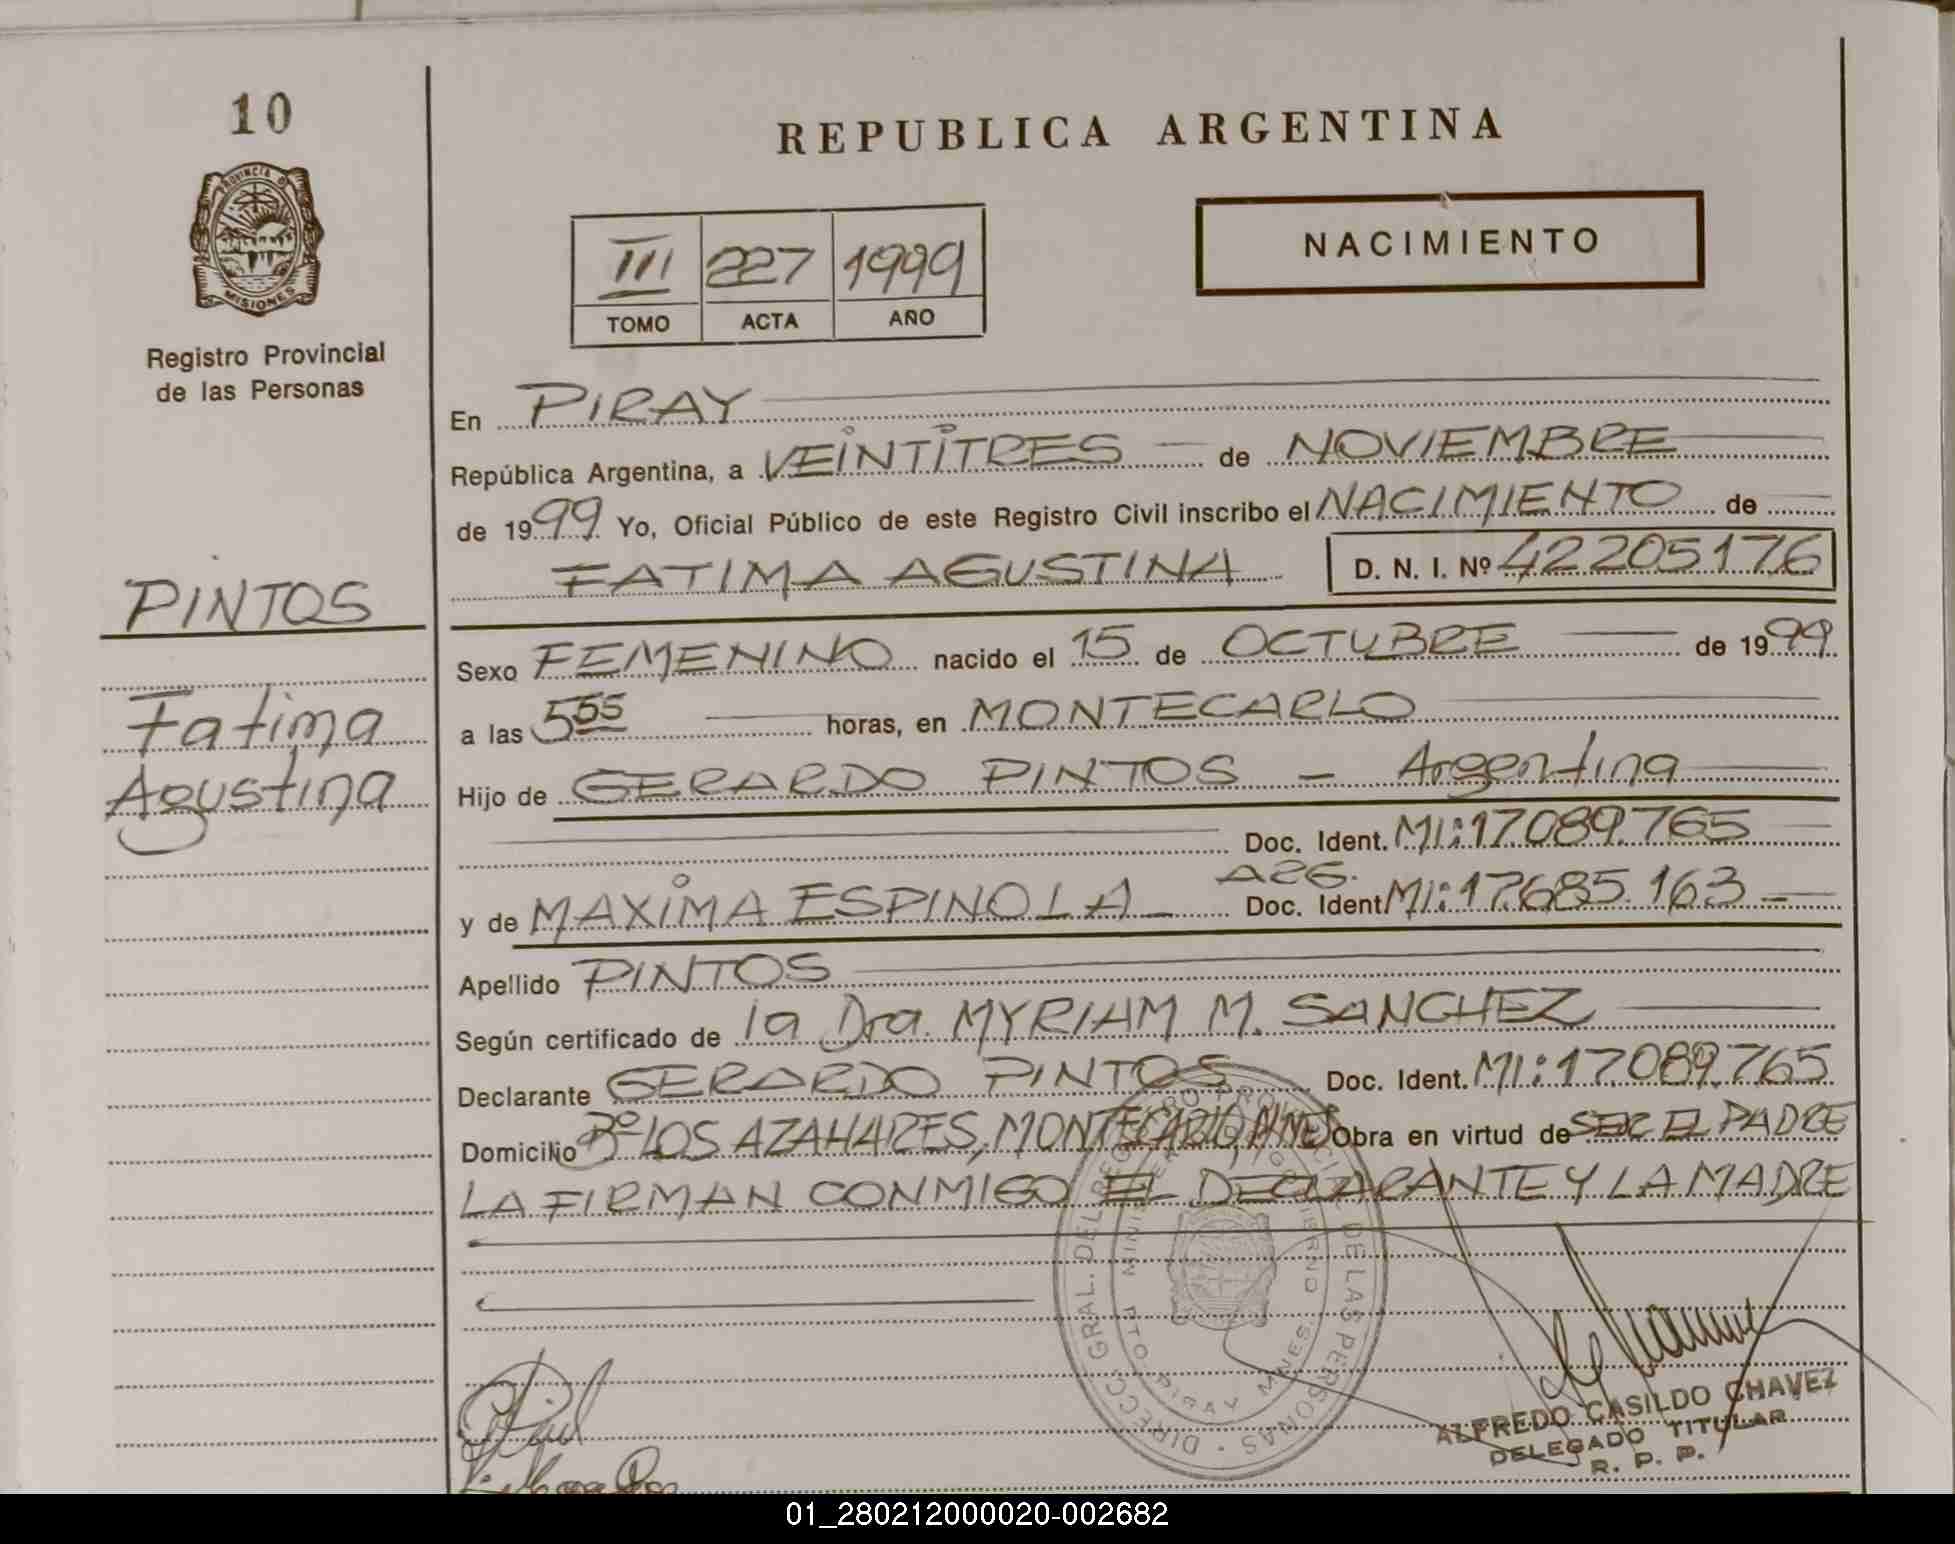 10
PROVINCIA DE
MISIONES
Registro Provincial
de las Personas
REPUBLICA ARGENTINA
III 227 1999
TOMO ACTA AÑO
NACIMIENTO
En PIRAY
República Argentina, a VEINTITRES de NOVIEMBRE
de 1999 Yo, Oficial Público de este Registro Civil inscribo el NACIMIENTO de
FATIMA AGUSTINA D. N. I. Nº 42205176
PINTOS
Fatima
Agustina
Sexo FEMENINO nacido el 15 de OCTUBRE de 1999
a las 5 55 horas, en MONTECARLO
Hijo de GERARDO PINTOS - Argentina
Doc. Ident. MI: 17.089.765
ARG.
y de MAXIMA ESPINOLA - Doc. Ident. MI: 17.685.163 -
Apellido PINTOS
Según certificado de la Dra. MYRIAM M. SANCHEZ
Declarante GERARDO PINTOS Doc. Ident. MI: 17.089.765
Domicilio Bº LOS AZAHARES, MONTECARLO, MNES Obra en virtud de SER EL PADRE
LA FIRMAN CONMIGO EL DECLARANTE Y LA MADRE
DIRECC. GRAL. DEL REGISTRO PROVINCIAL DE LAS PERSONAS
PTO. PIRAY MNES.
ALFREDO CASILDO CHAVEZ
DELEGADO TITULAR
R. P. P.
01_280212000020-002682